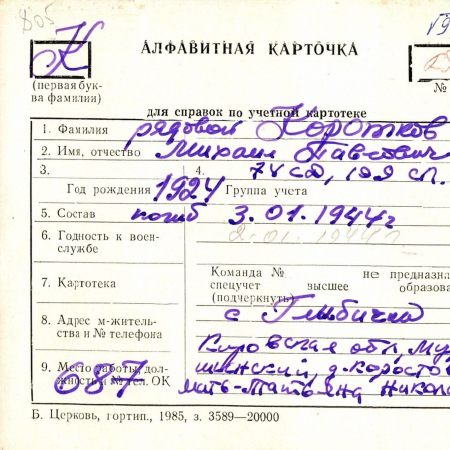 805
К
АЛФАВИТНАЯ КАРТОЧКА
(первая бук-
ва фамилии)
№
для справок по учетной картотеке
1. Фамилия рядовой Коротков
2. Имя, отчество Михаил Павлович
3. 4. 74 сд, 109 сп.
Год рождения 1924 Группа учета
5. Состав погиб 3.01.1944г
6. Годность к воен-
службе
2.01.1944г
7. Картотека
Команда № не предназна
спецучет высшее образова
(подчеркнуть)
8. Адрес м-жительс-
тва и № телефона
с Глыбичка
Кировская обл, Му
шинский, д. Коросто
9. Место работы, дол-
жность и № тел. ОК
687
мать-Татьяна Никола
Б. Церковь, гортип., 1985, з. 3589—20000